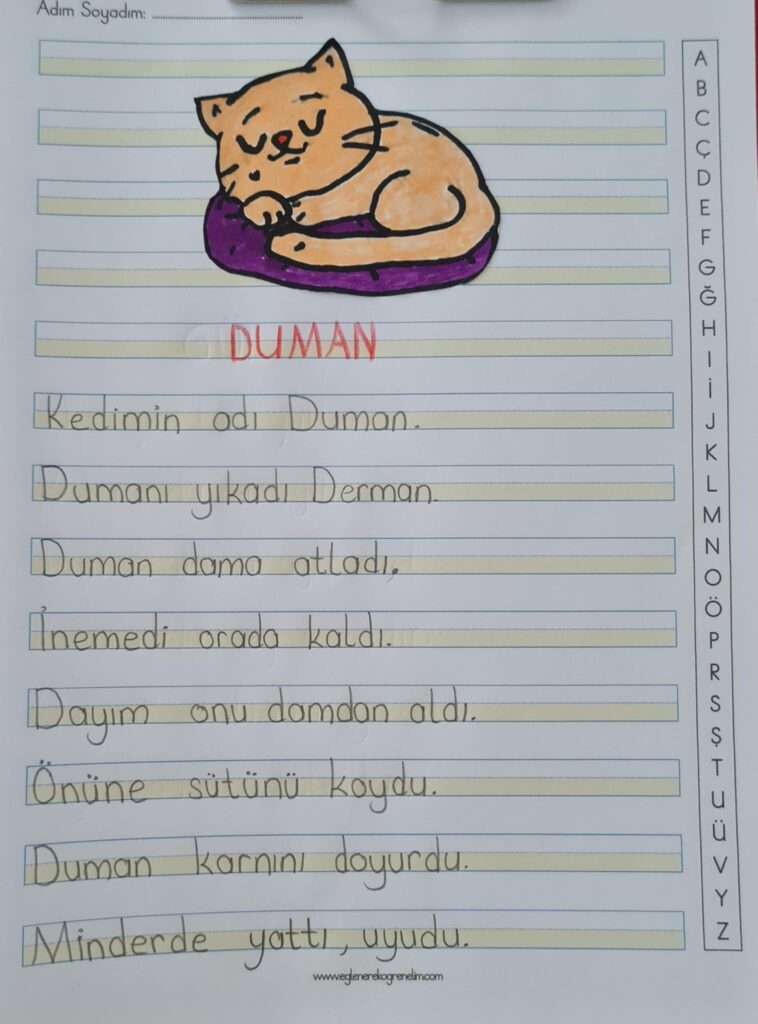 Adım Soyadım:
DUMAN
Kedimin adı Duman.
Dumanı yıkadı Derman.
Duman dama atladı.
İnemedi orada kaldı.
Dayım onu damdan aldı.
Önüne sütünü koydu.
Duman karnını doyurdu.
Minderde yattı, uyudu.
www.eglenerekogrenelim.com
A
B
C
Ç
D
E
F
G
Ğ
H
I
İ
J
K
L
M
N
O
Ö
P
R
S
Ş
T
U
Ü
V
Y
Z